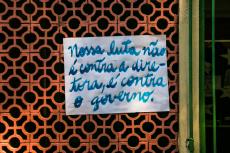 Nossa luta não
é contra a dire-
tora, é contra
o governo.